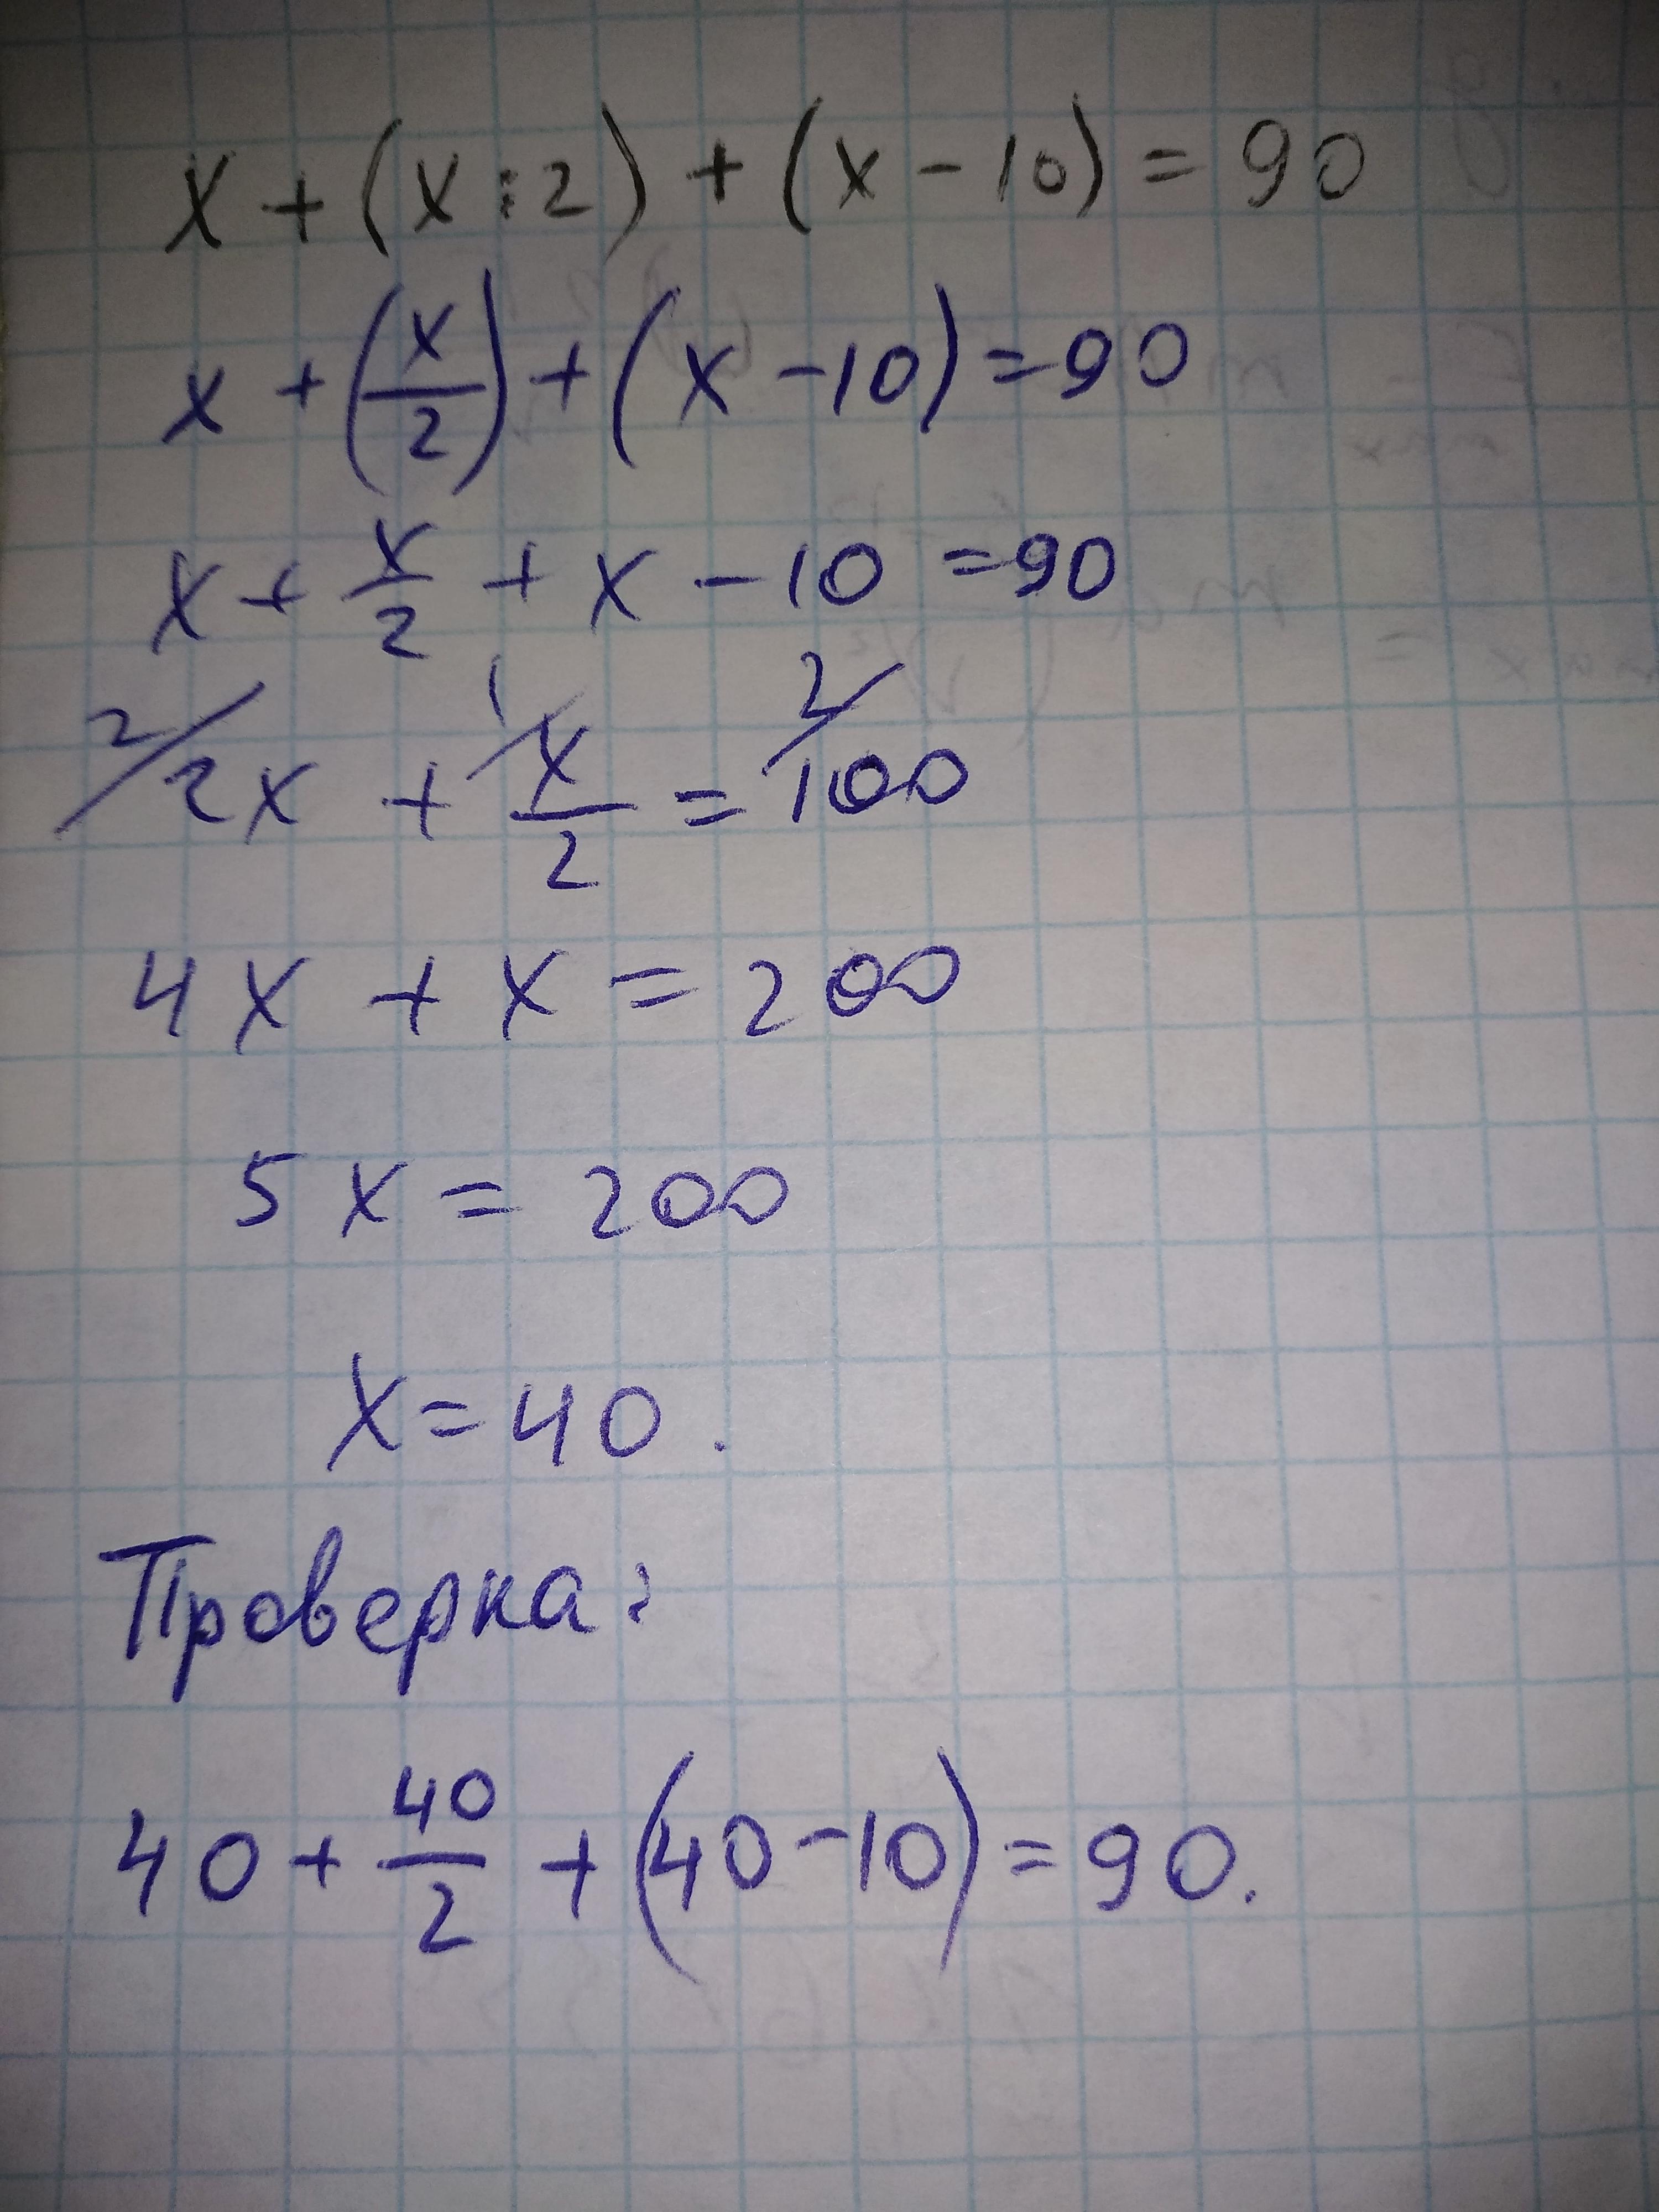 x + (x : 2) + (x - 10) = 90
x + (x/2) + (x - 10) = 90
x + x/2 + x - 10 = 90
2/ 2x + 1/ x/2 = 2/ 100
4x + x = 200
5x = 200
x = 40.
Проверка:
40 + 40/2 + (40 - 10) = 90.